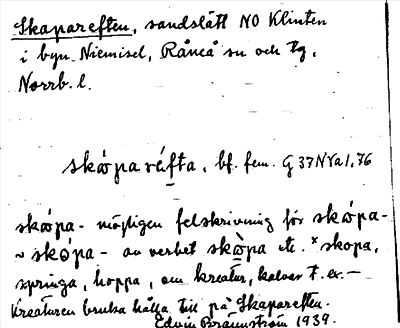 Skapareften, sandslått NO Klinten
i byn Niemisel, Råneå sn och tg,
Norrb. l.
skɷ́pará́fta, bf. fem. G 37 NYa 1, 76
skɷ́pa- möjligen felskrivning för skɷ̀pa-
~ skɷ̀pa- av verbet skɷ̀pa etc. *skopa,
springa, hoppa, om kreatur, kalvar t. ex. —
Kreaturen bruka hålla till på Skapareften.
Edvin Brännström 1939.